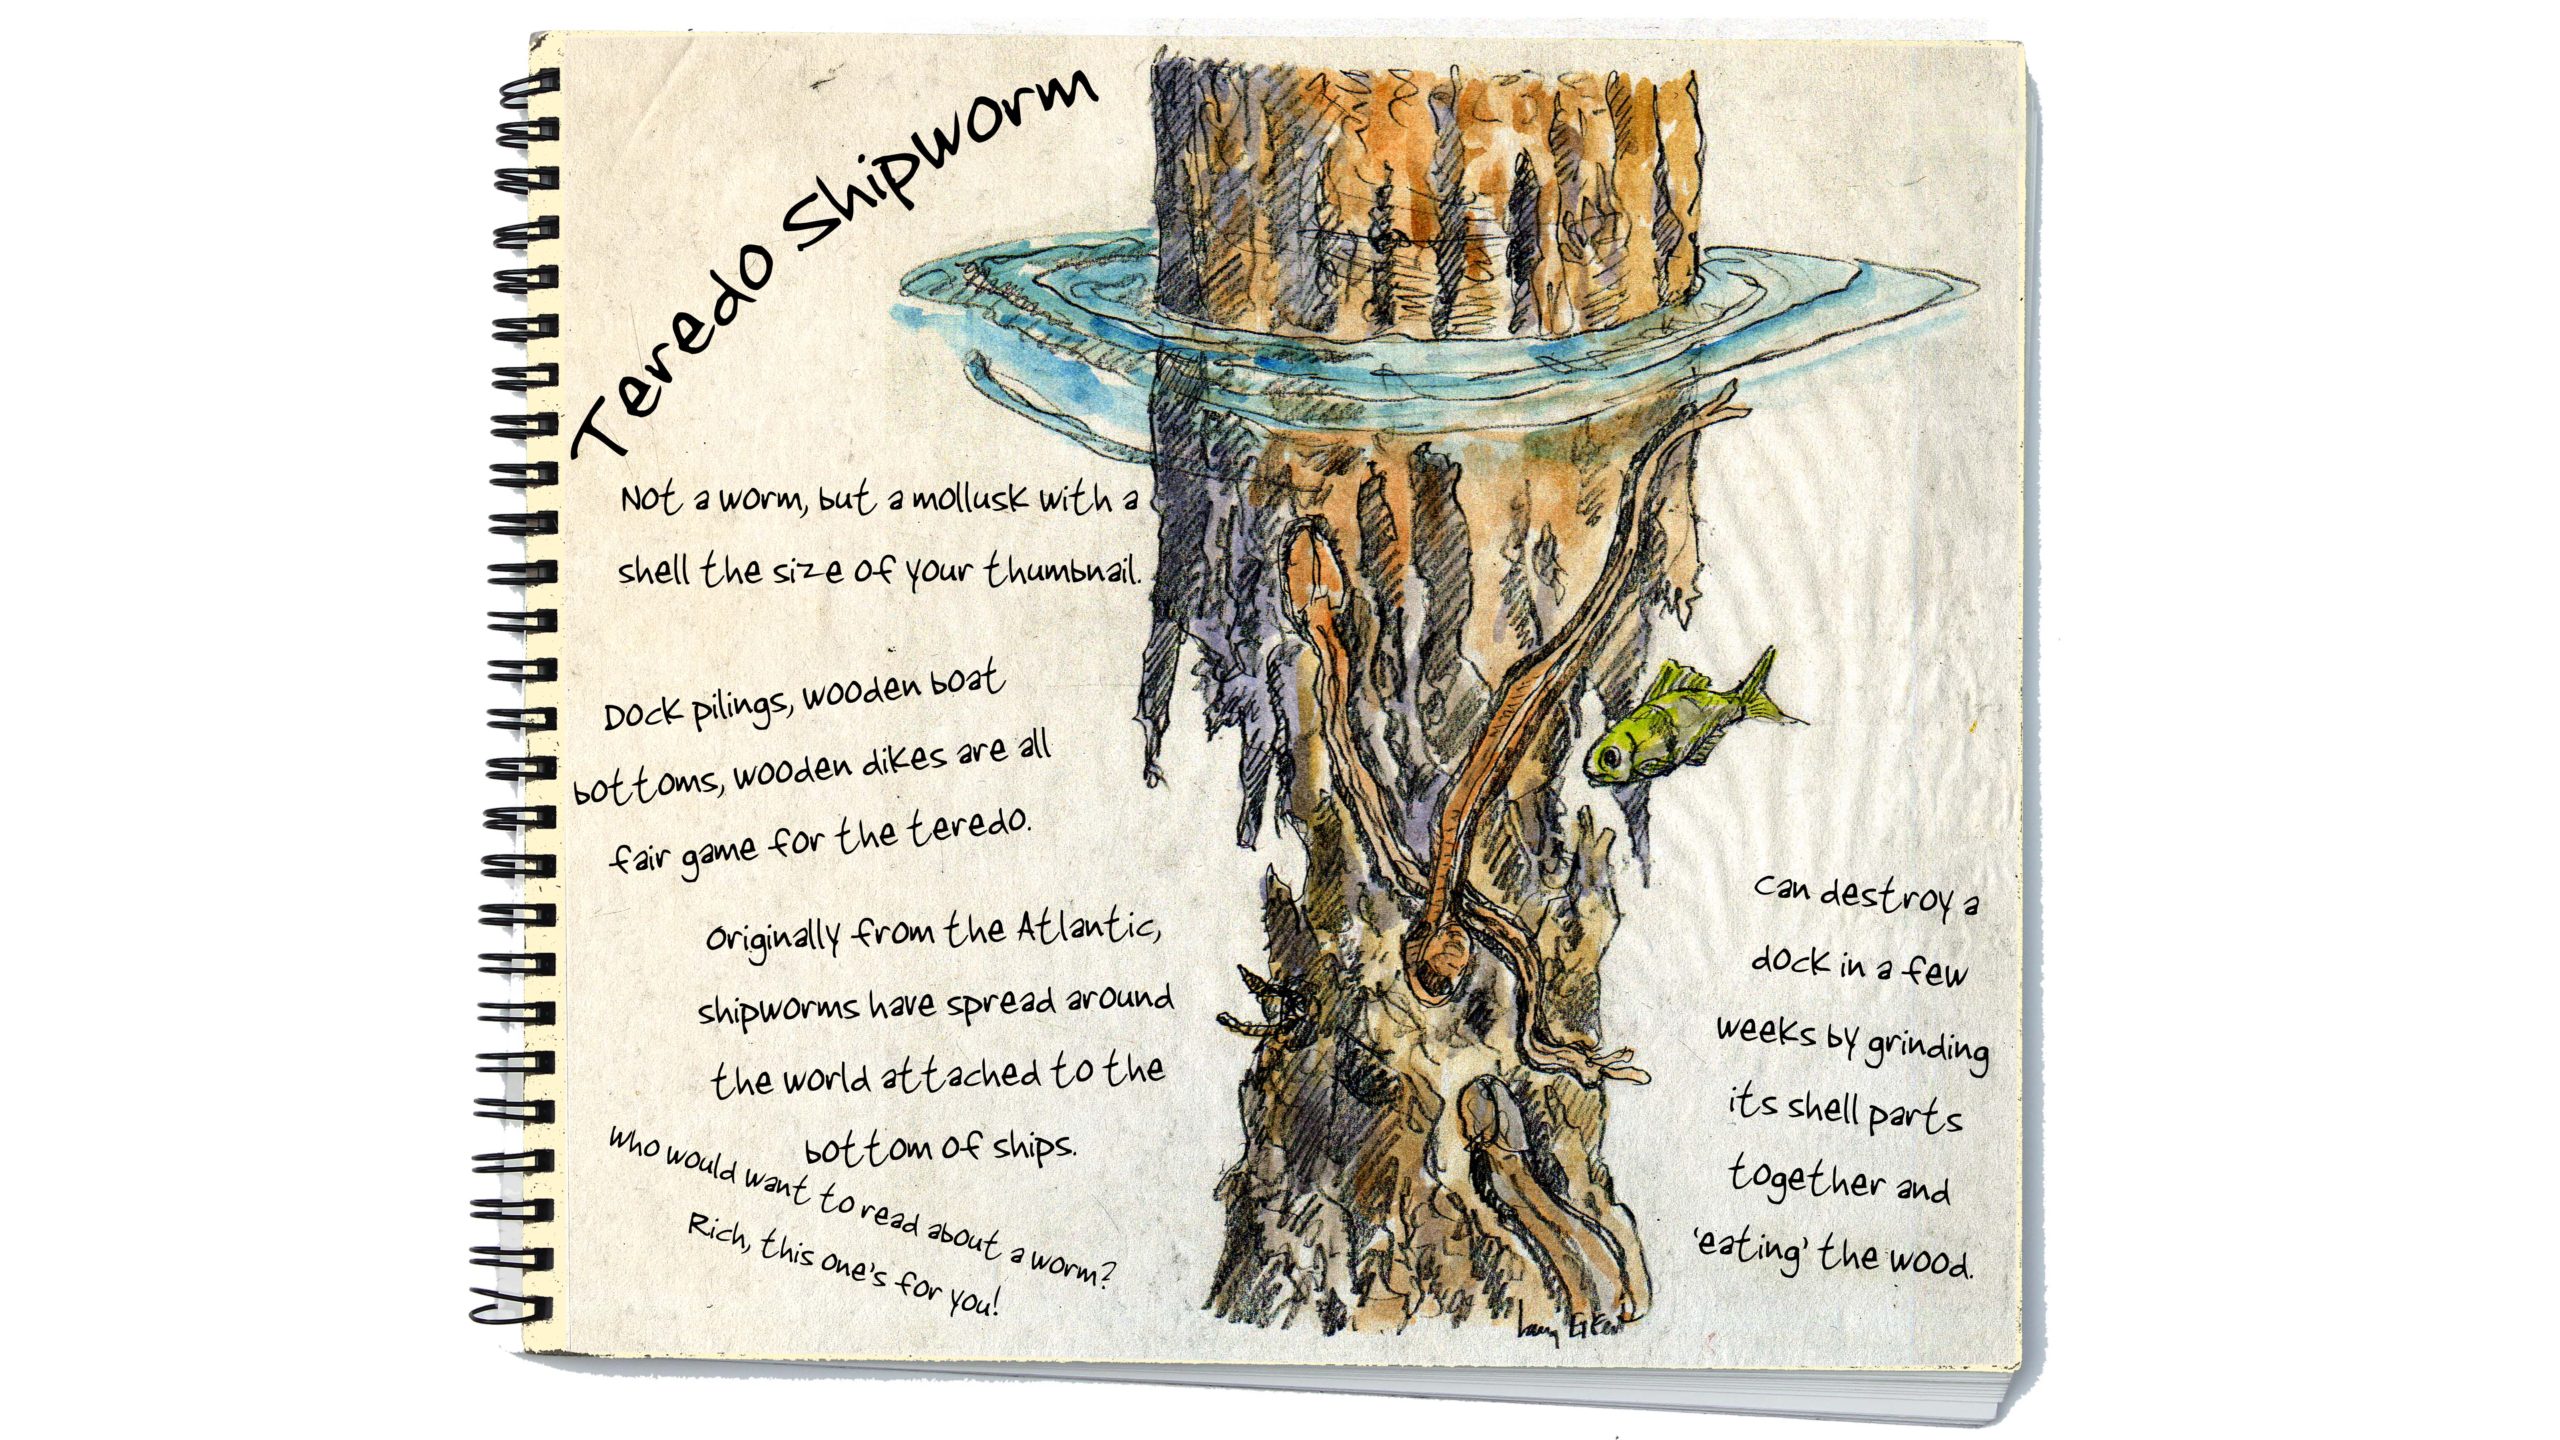 Teredo Shipworm
Not a worm, but a mollusk with a
shell the size of your thumbnail.
Dock pilings, wooden boat
bottoms, wooden dikes are all
fair game for the teredo.
Originally from the Atlantic,
shipworms have spread around
the world attached to the
bottom of ships.
Who would want to read about a worm?
Rich, this one's for you!
Can destroy a
dock in a few
weeks by grinding
its shell parts
together and
'eating' the wood.